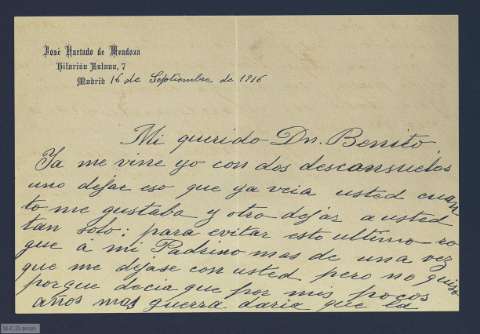 José Hurtado de Mendoza
Hilarión Eslava, 7
Madrid 16 de Septiembre de 1916
Mi querido Dn. Benito
Ya me vine yo con dos descansuelos
uno dejar eso que ya veia usted cuan
to me gustaba y otro dejar a usted
tan solo; para evitar esto ultimo ro
gue á mi Padrino mas de una vez
que me dejase con usted pero no quiso
porque decia que por mis pocos
años mas guerra daria que la